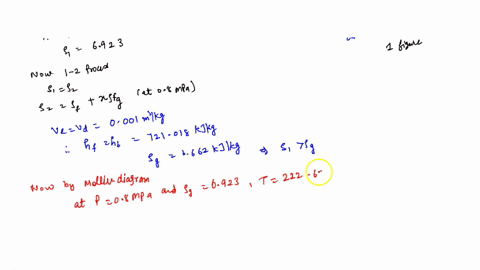 S₁ = 6.923
1 figure
Now 1-2 proced
S₁ = S₂
S₂ = Sf + x Sfg (at 0.8 mpa)
Ve = Vd = 0.001 m³/kg
∴ hf = h6 = 721.018 kJ/kg
Sg = 6.662 kJ/kg ⇒ S₁ > Sg
Now by Mollier diagram
at P = 0.8 MPa and Sg = 6.923 , T = 222.6